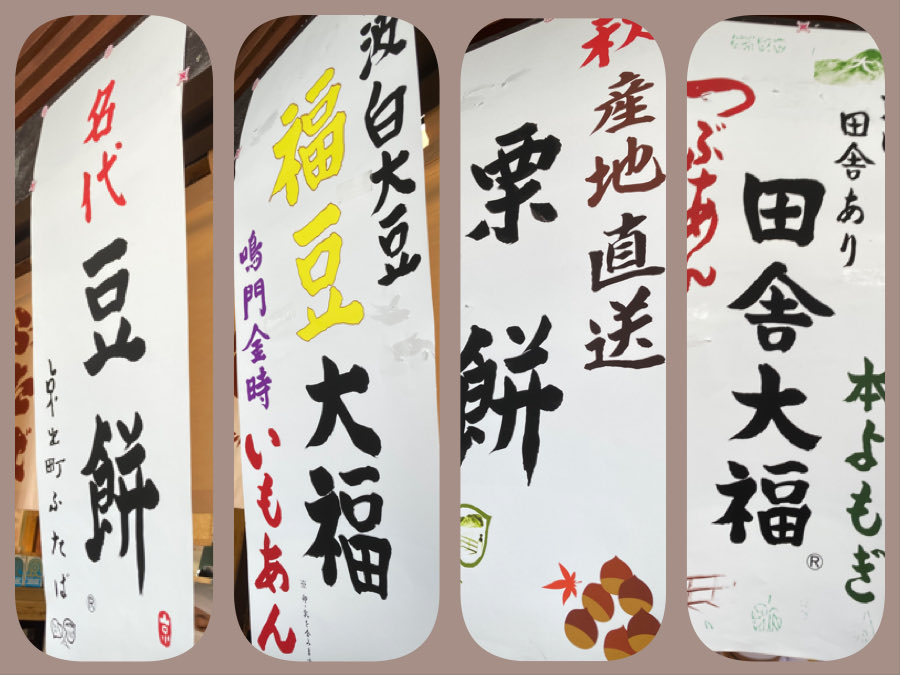 名代
豆餅
出町ふたば
®
京
白大豆
福豆
大福
鳴門金時
いもあん
産地直送
栗餅
田舎あり
つぶあん
田舎大福
®
本よもぎ